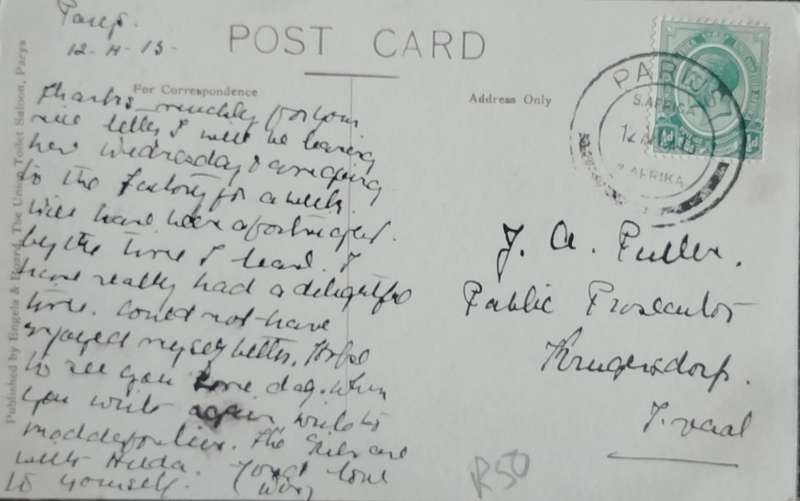 Parys.
12-4-15-
POST CARD
For Correspondence
Address Only
Thanks muchly for your
nice letter I will be leaving
here Wednesday & am going
to the Factory for a week.
Will have been a fortnight
by the time I leave. I
have really had a delightful
time. Could not have
enjoyed myself better. Hope
to see you some day. When
you write again write to
The Girls are
well Hilda. love
to yourself.
Published by Engels & Board, The Union Toilet Saloon, Parys
PARYS
S. AFRICA
12 15
Z. AFRIKA
J. A. Puller.
Public Prosecutor
Krugersdorp.
T. vaal
R50